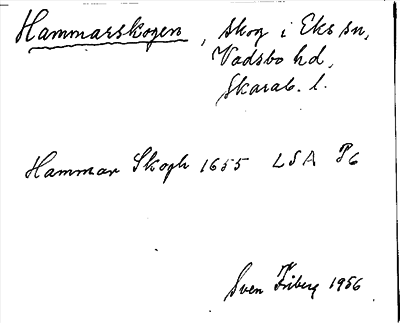 Hammarskogen, skog i Eks sn,
Vadsbo hd,
Skarab. l.
Hammar Skogh 1655 LSA P6
Sven Friberg 1956